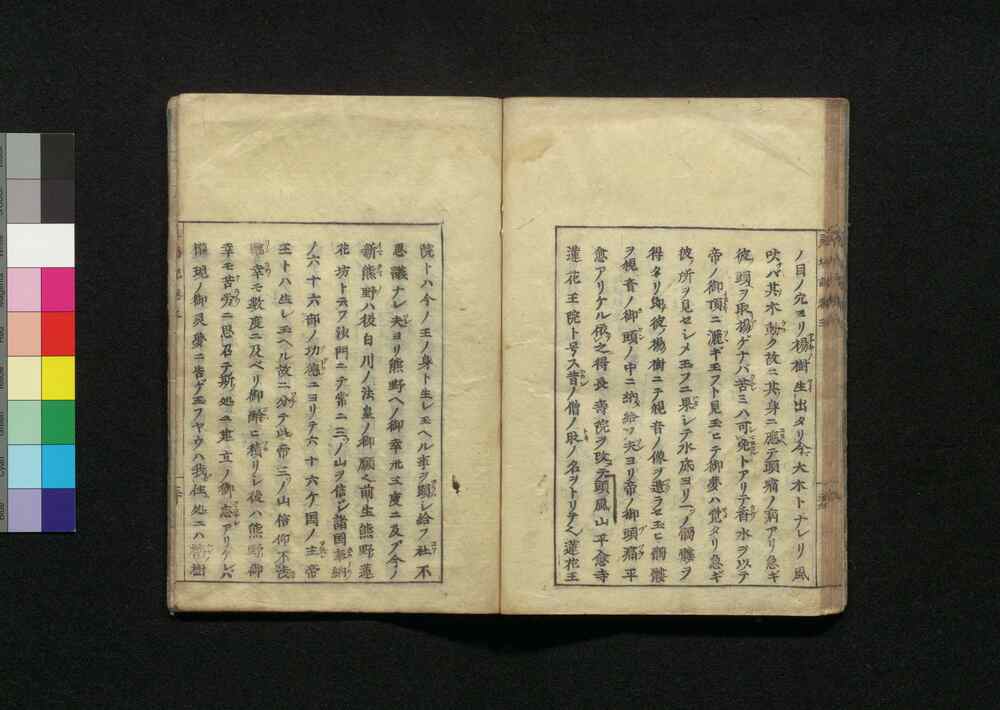 ノ目ノ穴ヨリ楊樹生出タリ今大木トナレリ風
吹バ其木動ク故ニ其身ニ應テ頭痛ノ病アリ急ギ
彼頭ヲ取揚ゲナバ苦ミハ可免トアリテ香水ヲ以テ
帝ノ御頂ニ灑ギ玉フト見玉ヒテ御夢ハ覚タリ急ギ
彼所ヲ見セシメ玉フニ果シテ水底ヨリ一ノ髑髏ヲ
得タリ則彼ノ楊樹ニテ観音ノ像ヲ造ラセ玉ヒ髑髏
ヲ観音ノ御頭ノ中ニ納給フ夫ヨリ帝ノ御頭痛平
愈アリケル依之得長壽院ヲ改テ頭風山平愈寺
蓮花王院ト号ス昔ノ僧ノ取ノ名ヲトリテ蓮花王
院トハ今ノ王ノ身ト生レ玉ヘル事ヲ顕シ給フ社不
思議ナレ夫ヨリ熊野ヘノ御幸卅三度ニ及ブ今ノ
新熊野ハ後白川ノ法皇ノ御願之前生熊野蓮
花坊ト云フ沙門ニテ常ニ三ノ山ヲ信ジ諸国奉納
ノ六十六部ノ功徳ニヨリテ六十六ケ国ノ主帝
王トハ生レ玉ヘル故ニ分テ此帝三ノ山信仰不浅
幸モ数度ニ及ベリ御齢ヒ積リシ後ハ熊野御
幸モ苦労ニ思召テ斯処ニ建立ノ御志アリケレバ
権現ノ御灵夢ニ告ゲ玉フヤウハ我住処ニハ樹